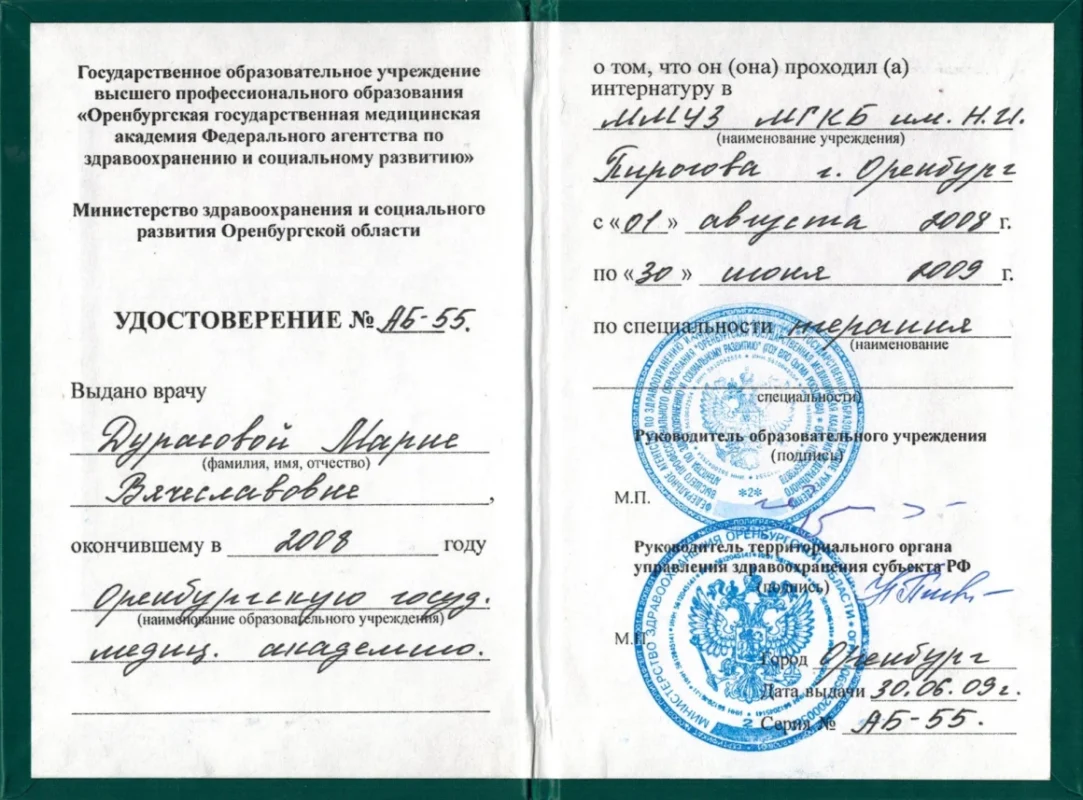 Государственное образовательное учреждение
высшего профессионального образования
«Оренбургская государственная медицинская
академия Федерального агентства по
здравоохранению и социальному развитию»
Министерство здравоохранения и социального
развития Оренбургской области
УДОСТОВЕРЕНИЕ № АБ-55.
Выдано врачу
Дурасовой Марие
(фамилия, имя, отчество)
Вячеславовне,
окончившему в 2008 году
Оренбургскую госуд.
(наименование образовательного учреждения)
медиц. академию.
о том, что он (она) проходил (а)
интернатуру в
ММУЗ МГКБ им. Н.И.
(наименование учреждения)
Пирогова г. Оренбург
с «01» августа 2008 г.
по «30» июня 2009 г.
по специальности терапия
(наименование
специальности)
Руководитель образовательного учреждения
(подпись)
М.П.
Руководитель территориального органа
управления здравоохранения субъекта РФ
(подпись)
М.П.
Город Оренбург
Дата выдачи 30.06.09г.
Серия № АБ-55.
МИНИСТЕРСТВО ЗДРАВООХРАНЕНИЯ ОРЕНБУРГСКОЙ ОБЛАСТИ